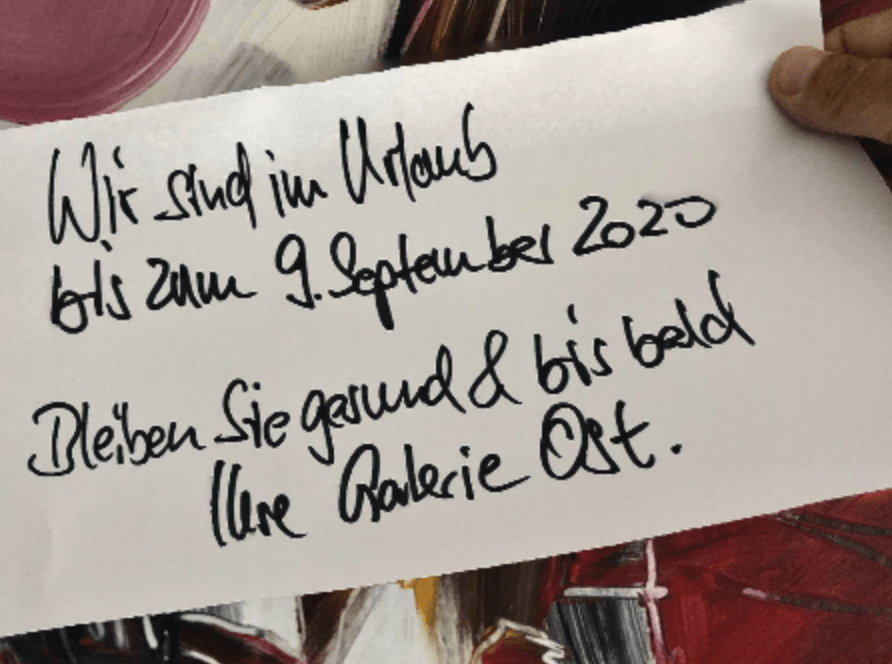 Wir sind im Urlaub
bis zum 9. September 2020
Bleiben Sie gesund & bis bald
Ihre Galerie Ost.